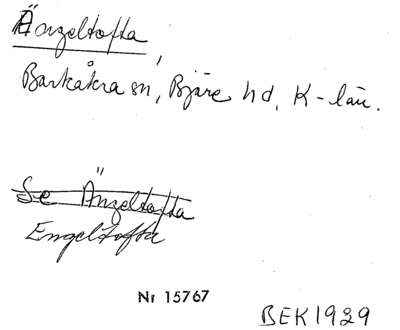 Änzeltofta
Barkåkra sn, Bjäre hd, K-län.
Se Änzeltofta
Engeltofta
Nr 15767
BEK 1929